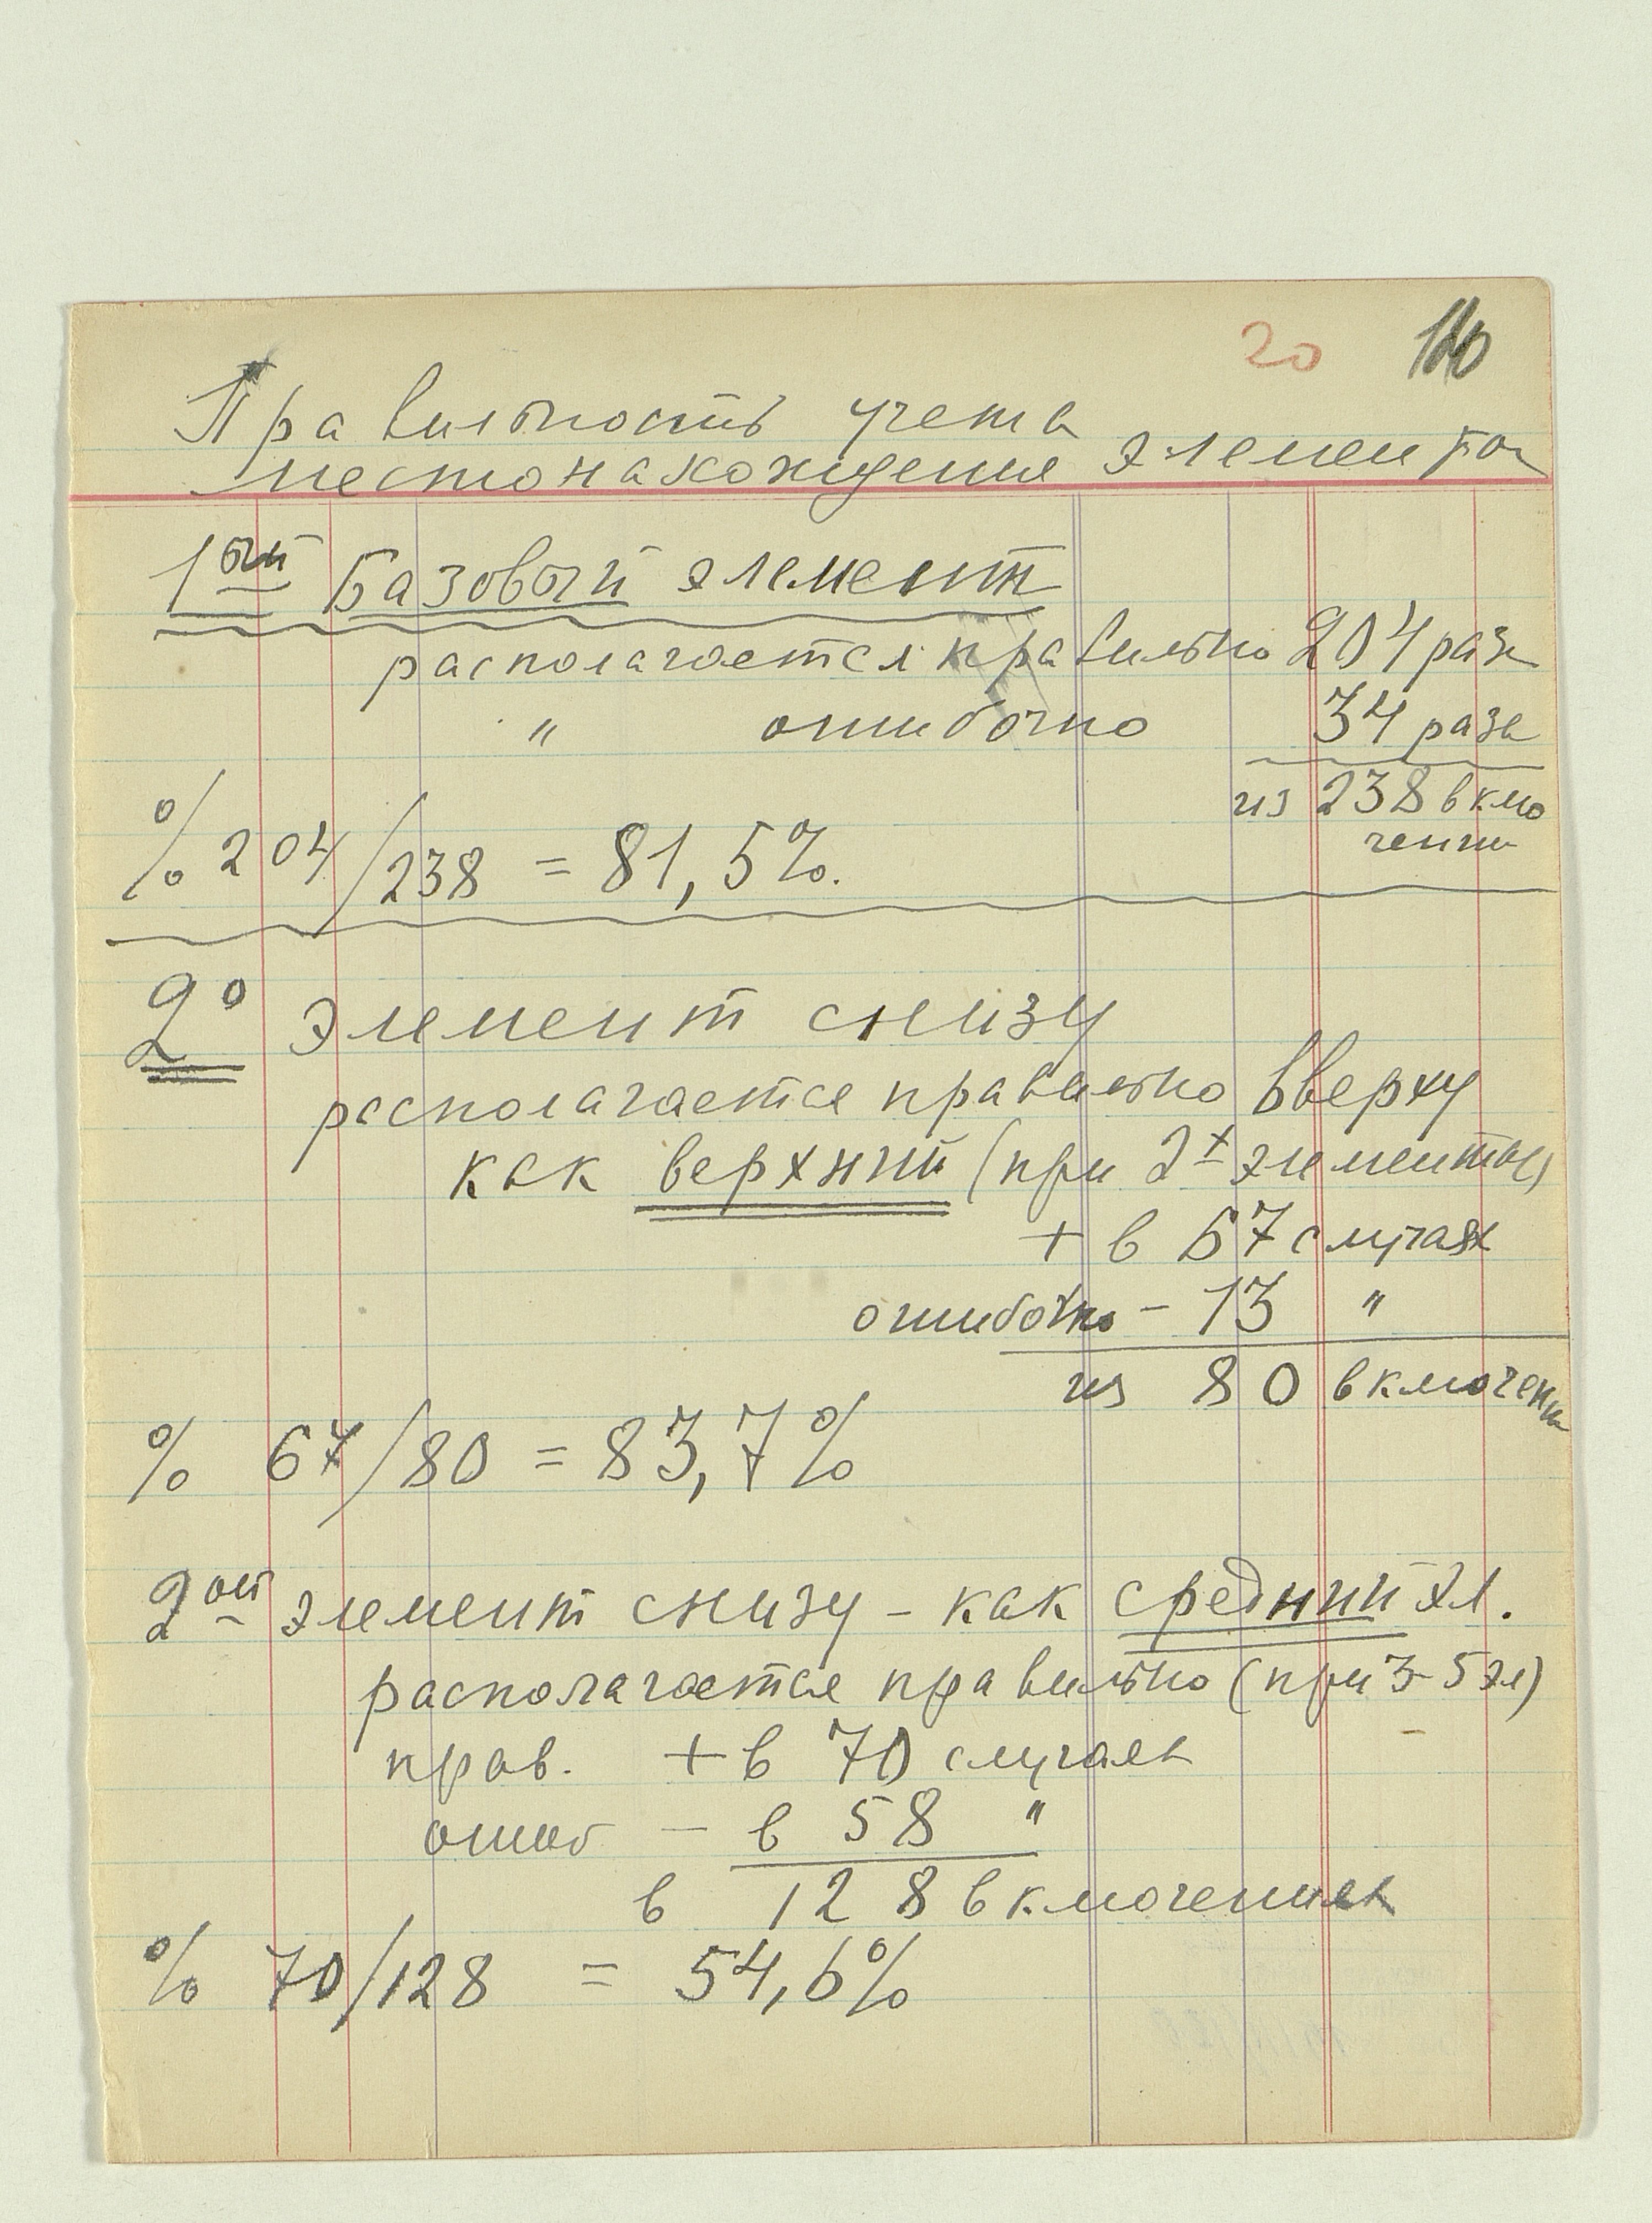 20
Правильность учета
местонахождения элементов
1ый Базовый элемент
располагается правильно 204 раза
" ошибочно 34 раза
из 238 вклю
чений
% 204/238 = 81,5%.
2º элемент снизу
располагается правильно вверху
как верхний (при 2х элементах)
+ в 67 случаях
ошибочно - 13 "
из 80 включений
% 67/80 = 83,7%
2ой элемент снизу - как средний эл.
располагается правильно (при 3-5 эл)
прав. + в 70 случаях
ошиб - в 58 "
в 128 включениях
% 70/128 = 54,6%